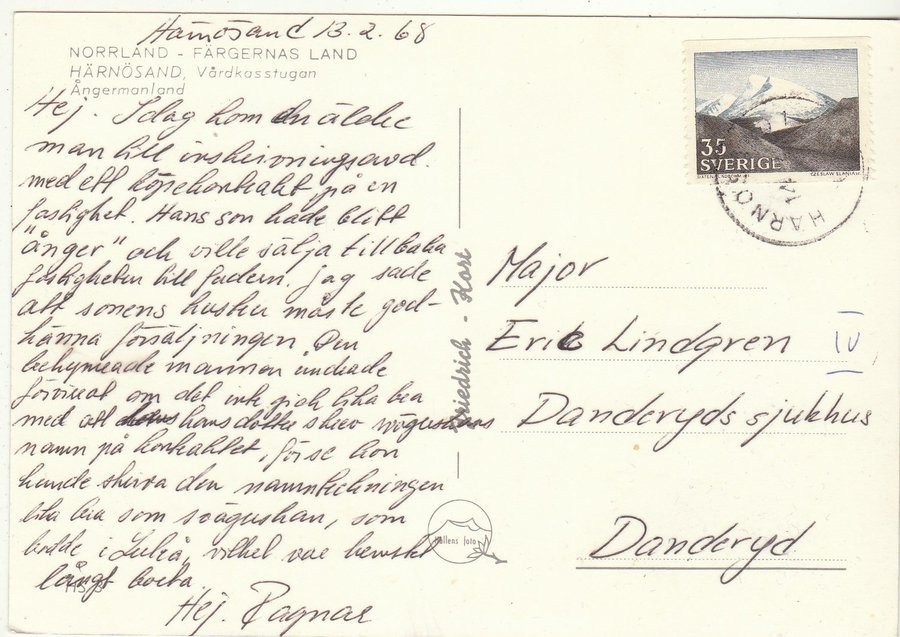 Härnösand 13.2.68
NORRLAND - FÄRGERNAS LAND
HÄRNÖSAND, Vårdkasstugan
Ångermanland
Hej. Idag kom en äldre
man till inskrivningsavd.
med ett köpekontrakt på en
fastighet. Hans son hade blitt
"ånger" och ville sälja tillbaka
fastigheten till fadern. Jag sade
att sonens hustru måste god-
känna försäljningen. Den
bekymrade mannen undrade
förvirrat om det inte gick lika bra
med att hans dotter skrev svägerskans
namn på kontraktet, för se hon
kunde skriva den namnteckningen
lika bra som svägerskan, som
bodde i Luleå, vilket var hemskt
långt borta.
Hej. Ragnar
HS 3
Friedrich - Kort
Hallens foto
35
SVERIGE
CZESLAW SLANIA SC
HÄRNÖ
Major
Eric Lindgren
IV
Danderyds sjukhus
Danderyd